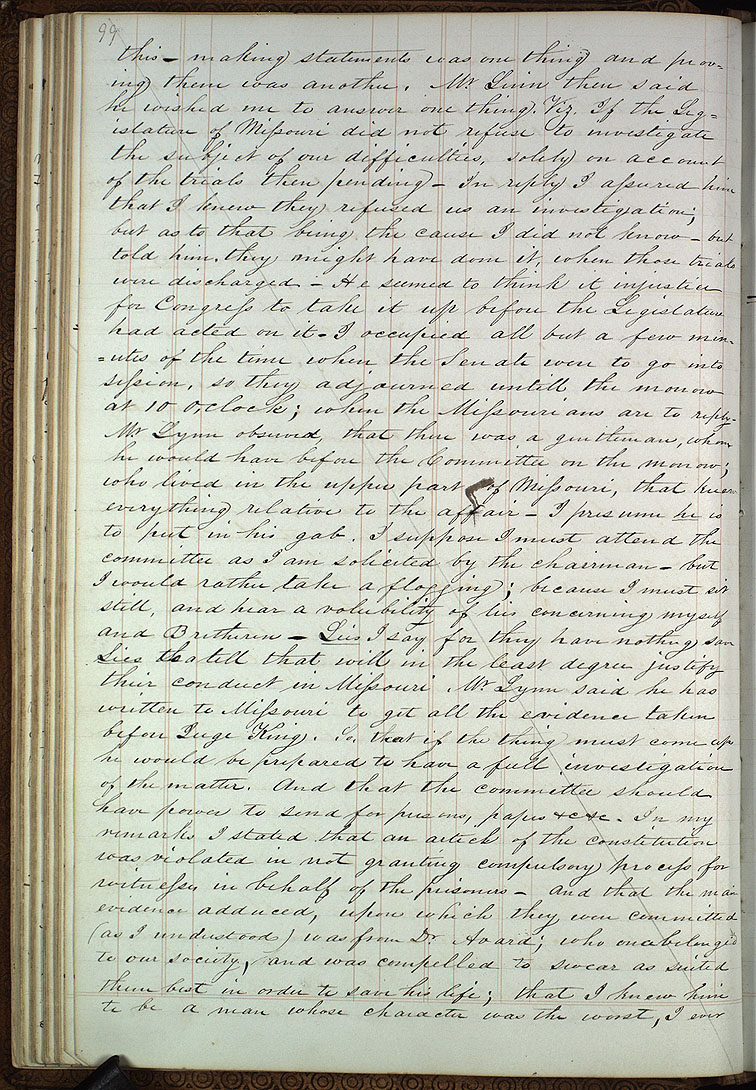 99
this— making statements was one thing and prov=
ing them was another. Mr Linn then said
he wished me to answer one thing. Viz. If the Leg=
islature of Missouri did not refuse to investigate
the subject of our difficulties, solely on account
of the trials then pending— In reply I assured him
that I knew they refused us an investigation;
but as to that being the cause I did not know— but
told him, they might have done it when those trials
were discharged— He seemed to think it injustice
for Congress to take it up before the Legislature
had acted on it— I occupied all but a few min-
=utes of the time when the Senate were to go into
session, so they adjourned untill the morrow
at 10 o,clock; when the Missourians are to reply—
Mr Lynn observed, that there was a gentleman, whom
he would have before the Committee on the morrow;
who lived in the upper part of Missouri, that knew
everything relative to the affair— I presume he is
to put in his gab. I suppose I must attend the
committee as I am solicited by the chairman— but
I would rather take a flogging; because I must sit
still, and hear a volubility of lies concerning myself
and Bretheren— Lies I say for they have nothing save
Lies to tell that will in the least degree justify
their conduct in Missouri. Mr Lynn said he has
written to Missouri to get all the evidence taken
before Juge King. So, that if the thing must come up
he would be prepared to have a full investigation
of the matter. And that the committee should
have power to send for persons, papers &c &c. In my
remarks I stated that an article of the constitution
was violated in not granting compulsory process for
witnesses in behalf of the prisoners— and that the main
evidence adduced, upon which they were committed
(as I understood) was from Dr Avard; who once belonged
to our society, and was compelled to swear as suited
them best in order to save his life; that I knew him
to be a man whose character was the worst, I ever